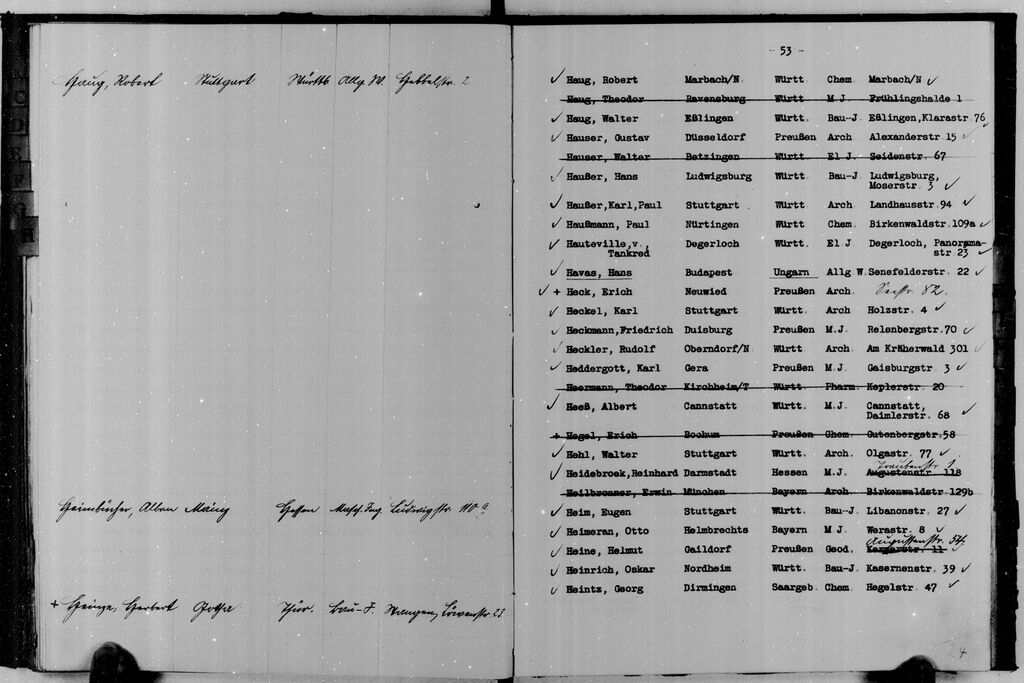 Haug, Robert Stuttgart Württb. Allg. W. Hebbelstr. 2
Heimbücher, Alban Mainz Hessen Masch. Ing. Ludwigstr.
+ Heinze, Herbert Gotha Thür. Bau-J. Löwenstr. 23
- 53 -
✓ Haug, Robert Marbach/N Württ Chem Marbach/N ✓
Haug, Theodor Ravensburg Württ M.J. Frühlingshalde 1
✓ Haug, Walter Eßlingen Württ. Bau-J Eßlingen,Klarastr 76 ✓
✓ Hauser, Gustav Düsseldorf Preußen Arch Alexanderstr 15 ✓
Hauser, Walter Betzingen Württ. El J. Seidenstr. 67
✓ Haußer, Hans Ludwigsburg Württ Bau-J Ludwigsburg,
Moserstr. 3 ✓
✓ Haußer,Karl,Paul Stuttgart Württ Arch Landhausstr.94 ✓
✓ Haußmann, Paul Nürtingen Württ Chem. Birkenwaldstr.109a ✓
✓ Hauteville,v., Degerloch Württ. El J Degerloch, Panorama-
Tankred str 23 ✓
✓ Havas, Hans Budapest Ungarn Allg W. Senefelderstr. 22 ✓
✓ + Heck, Erich Neuwied Preußen Arch. Seestr 82.
✓ Heckel, Karl Stuttgart Württ Arch Holzstr. 4 ✓
✓ Heckmann,Friedrich Duisburg Preußen M.J. Relenbergstr.70 ✓
✓ Heckler, Rudolf Oberndorf/N Württ Arch Am Kräherwald 301 ✓
✓ Heddergott, Karl Gera Preußen M.J. Gaisburgstr 3 ✓
Heermann, Theodor Kirchheim/T Württ Pharm. Keplerstr. 20
✓ Heeß, Albert Cannstatt Württ. M.J. Cannstatt,
Daimlerstr. 68 ✓
+ Hegel, Erich Bochum Preußen Chem. Gutenbergstr.58
✓ Hehl, Walter Stuttgart Württ. Arch. Olgastr. 77 ✓
Traubenstr 1
✓ Heidebroek,Reinhard Darmstadt Hessen M.J. Augustenstr 118
Heilbronner, Erwin München Bayern Arch. Birkenwaldstr.129b
✓ Heim, Eugen Stuttgart Württ. Bau-J. Libanonstr. 27 ✓
✓ Heimeran, Otto Helmbrechts Bayern M J. Werastr. 8 ✓
Augustenstr. 54
✓ Heine, Helmut Gaildorf Preußen Geod. Kernerstr. 11
✓ Heinrich, Oskar Nordheim Württ. Bau-J. Kasernenstr. 39 ✓
✓ Heintz, Georg Dirmingen Saargeb. Chem Hegelstr. 47 ✓